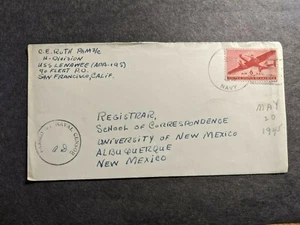 O.E. RUTH PHM 1/C
H-DIVISION
USS LENAWEE (APA-195)
℅ FLEET P.O.
SAN FRANCISCO, CALIF.
6
NAVY
REGISTRAR,
SCHOOL OF CORRESPONDENCE
UNIVERSITY OF NEW MEXICO
ALBUQUERQUE
NEW MEXICO
MAY
20
NAVAL CENSOR